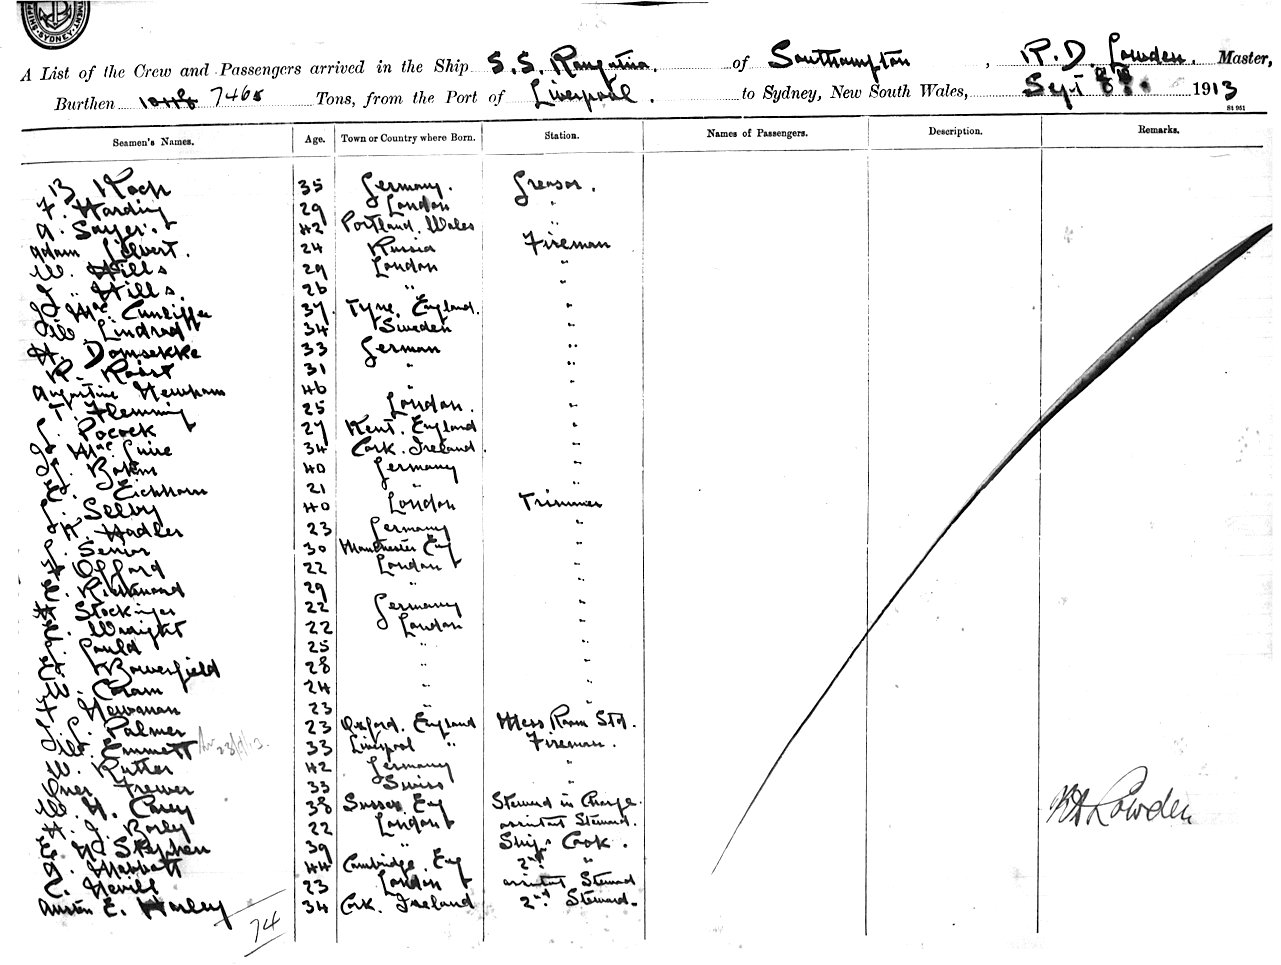 A List of the Crew and Passengers arrived in the Ship S.S. Rangatira. of Southampton, R. D. Lowden. Master,
Burthen 7465 Tons, from the Port of Liverpool. to Sydney, New South Wales, Sept 1913
St 951
Seamen's Names. Age. Town or Country where Born. Station. Names of Passengers. Description. Remarks.
B Koch 35 Germany. Greaser.
F. Harding 29 London "
A. Sayer. 42 Portland. Wales "
Adam 24 Russia Fireman
W. Hills 29 London "
Hills. 26 " "
Mc. Cunliffe 37 Tyne. England. "
Lindrad 34 Sweden "
H. Domsekke 33 German "
R. 31 " "
Augustine Newham 46 "
T. Flemming 25 London. "
Pocock 27 Kent. England "
McGuire 34 Cork. Ireland "
40 Germany "
Eichhorn 21 " "
Selby 40 London Trimmer
K. Hadler 23 Germany "
Senior 30 Manchester Eng "
Offord 22 London "
Richmond 29 " "
H Stockinger 22 Germany "
Wright 22 London "
Gauld 25 " "
Bowerfield 28 " "
W. Coram 24 " "
F. Newman 23 " "
Palmer 23 Oxford. England Mess Room Std.
Emmett 33 Liverpool " Fireman.
W. Rutter 42 Germany "
Frewer 33 Swiss "
W. H. Carey 38 Sussex Eng Steward in Charge
H. J. Borley 22 London assistant Steward.
Stephen 39 " Ships Cook.
A. Mabbatt 44 Cambridge. Eng 2nd "
C. Nevill 23 London assistant Steward
Austin E. Harley 34 Cork. Ireland 2nd Steward.
74
RD Lowden